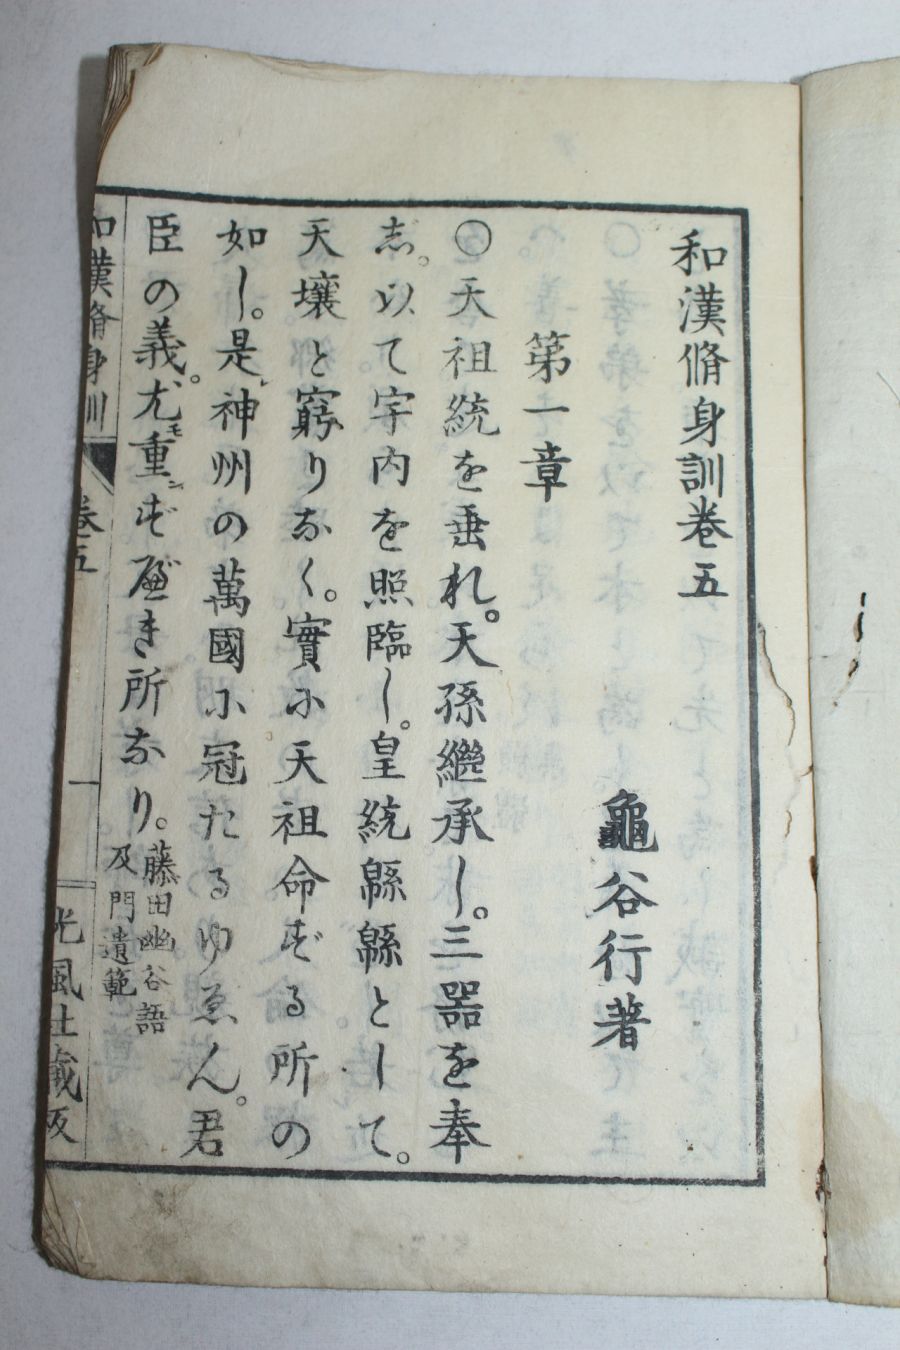 和漢脩身訓卷五
龜谷行著
第一章
〇天祖統を垂れ。天孫繼承し。三器を奉
志。以て宇内を照臨し。皇統緜緜として。
天壤と窮りなく。實に天祖命ずる所の
如し。是神州の萬國に冠たるゆゑん。君
臣の義。尤モ重ンずべき所なり。藤田幽谷語
及門遺範
和漢脩身訓 卷五 一 光風社藏板